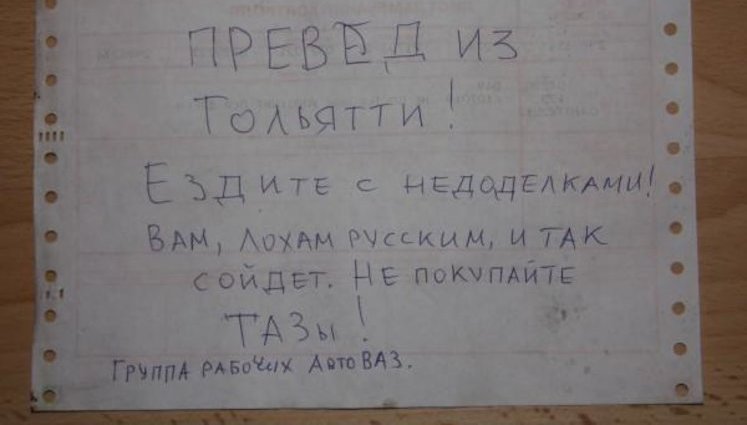 ПРЕВЕД ИЗ
ТОЛЬЯТТИ!
ЕЗДИТЕ С НЕДОДЕЛКАМИ!
ВАМ, ЛОХАМ РУССКИМ, И ТАК
СОЙДЕТ. НЕ ПОКУПАЙТЕ
ТАЗЫ!
ГРУППА РАБОЧИХ АВТОВАЗ.